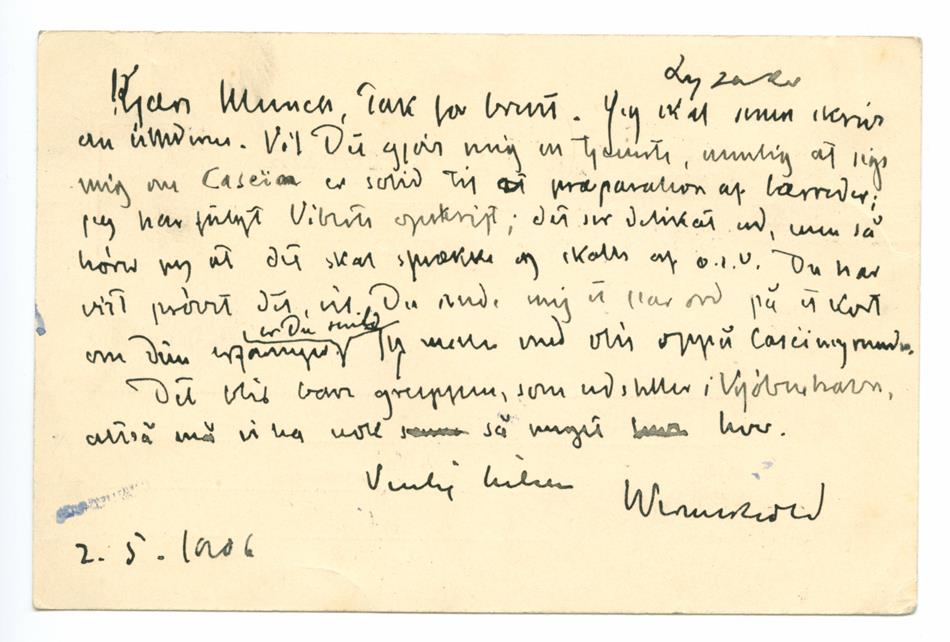 Lysaker
Kjære Munch, Tak for brevet. Jeg skal senere skrive
om tiderne. Vil Du gjøre mig en tjeneste, nemlig at sige
mig om Casein er solid til at præparation af lærreder;
jeg har fulgt Viberts opskrift; det ser delikat ud, men så
hører jeg at det skal sprække og skalle af o.s.v. Du har
vist prøvet det, vil Du sende mig et par ord på et kort
er Du snild
om dine erfaringer. Jeg maler med olie oppå Caseingrunden.
Det blir bare gruppen, som udstiller i Kjøbenhavn,
altså må vi ha nok så meget hver.
Venlig hilsen
Werenskiold
2. 5. 1906